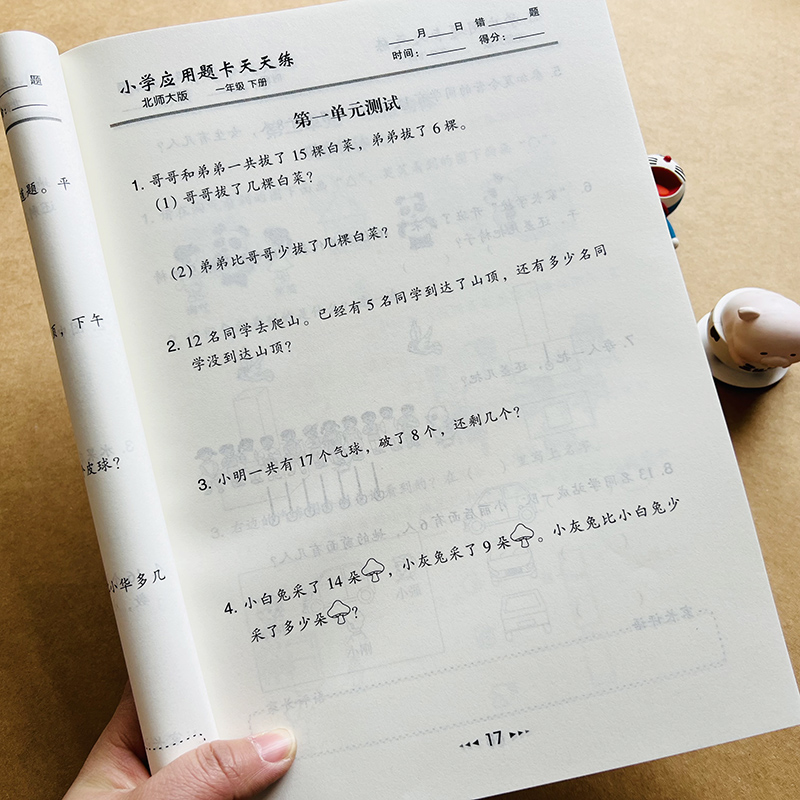 题
月 日 错 题
时间： 得分：
小学应用题卡天天练
北师大版 一年级 下册
第一单元测试
1. 哥哥和弟弟一共拔了 15 棵白菜，弟弟拔了 6 棵。
(1) 哥哥拔了几棵白菜？
(2) 弟弟比哥哥少拔了几棵白菜？
2. 12 名同学去爬山。已经有 5 名同学到达了山顶，还有多少名同
学没到达山顶？
3. 小明一共有 17 个气球，破了 8 个，还剩几个？
4. 小白兔采了 14 朵，小灰兔采了 9 朵。小灰兔比小白兔少
采了多少朵？
17
题。平
下午
皮球？
小华多几